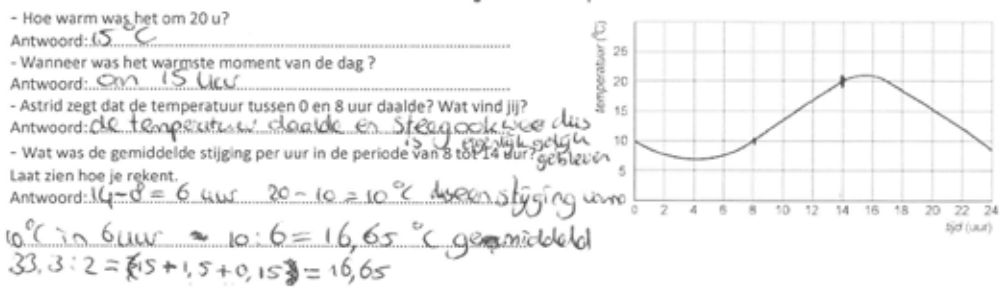 - Hoe warm was het om 20 u?
Antwoord: 15 °C
- Wanneer was het warmste moment van de dag ?
Antwoord: om 15 uur
- Astrid zegt dat de temperatuur tussen 0 en 8 uur daalde? Wat vind jij?
Antwoord: de temperatuur daalde en steeg ook weer dus
is eigenlijk gelijk
gebleven
- Wat was de gemiddelde stijging per uur in de periode van 8 tot 14 uur?
Laat zien hoe je rekent.
Antwoord: 14-8 = 6 uur 20-10 = 10 °C dus een stijging van
10 °C in 6 uur 10:6 = 16,65 °C gemiddeld
33,3:2 = (15+1,5+0,15) = 16,65
temperatuur (°C)
25
20
15
10
5
0 2 4 6 8 10 12 14 16 18 20 22 24
tijd (uur)